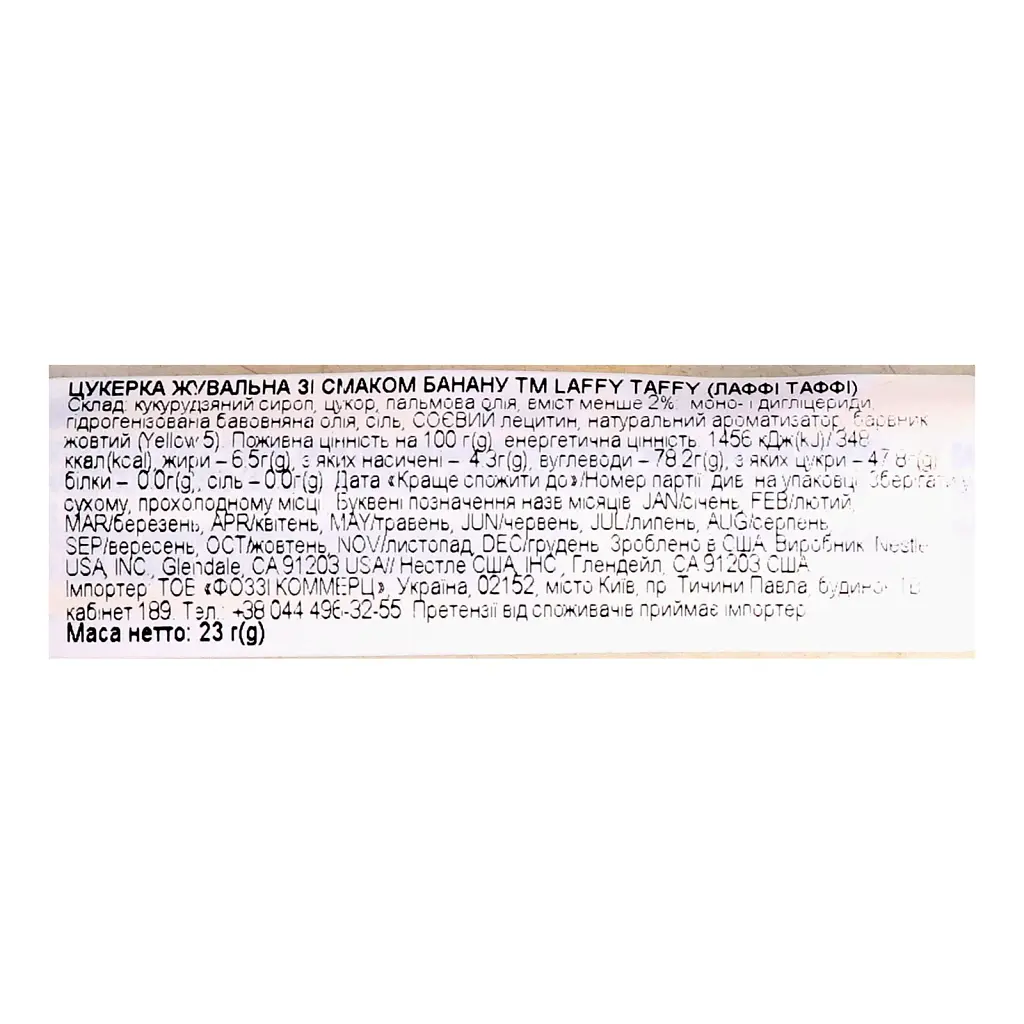 ЦУКЕРКА ЖУВАЛЬНА ЗІ СМАКОМ БАНАНУ ТМ LAFFY TAFFY (ЛАФФІ ТАФФІ)
Склад: кукурудзяний сироп, цукор, пальмова олія, вміст менше 2%: моно- і дигліцериди,
гідрогенізована бавовняна олія, сіль, СОЄВИЙ лецитин, натуральний ароматизатор, барвник
жовтий (Yellow 5). Поживна цінність на 100 г(g), енергетична цінність: 1456 кДж(kJ)/ 348
ккал(kcal), жири – 6.5г(g), з яких насичені – 4.3г(g), вуглеводи – 78.2г(g), з яких цукри – 47.8 г(g),
білки – 0.0г(g), сіль – 0.0г(g). Дата «Краще спожити до»/Номер партії: див. на упаковці. Зберігати у
сухому, прохолодному місці. Буквені позначення назв місяців: JAN/січень, FEB/лютий,
MAR/березень, APR/квітень, MAY/травень, JUN/червень, JUL/липень, AUG/серпень,
SEP/вересень, OCT/жовтень, NOV/листопад, DEC/грудень. Зроблено в США. Виробник: Nestle
USA, INC., Glendale, CA 91203 USA// Нестле США, ІНС., Глендейл, СА 91203 США.
Імпортер: ТОВ «ФОЗЗІ КОММЕРЦ», Україна, 02152, місто Київ, пр. Тичини Павла, будинок
кабінет 189. Тел.: +38 044 496-32-55. Претензії від споживачів приймає імпортер.
Маса нетто: 23 г(g)